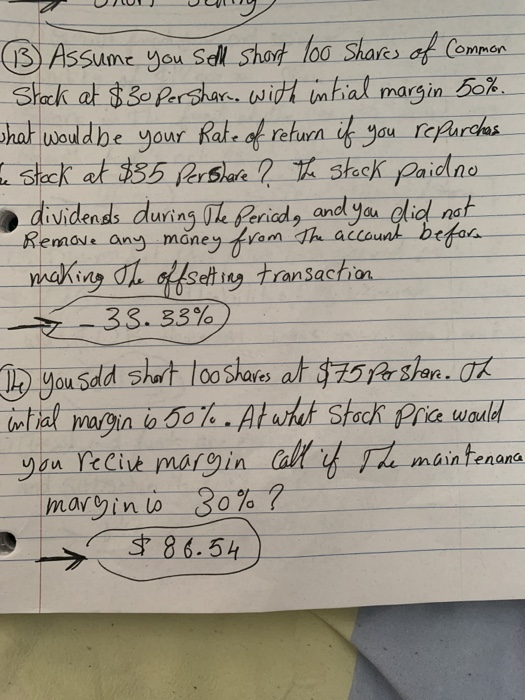 (13) Assume you sell short 100 shares of Common
Stock at $30 Per share. with intial margin 50%.
what would be your Rate of return if you repurchas
stock at $35 Per share? The stock paid no
dividends during The Period, and you did not
Remove any money from The account before
making The offsetting transaction
→ - 33.33%
(14) you Sold short 100 shares at $75 Per share. The
intial margin is 50%. At what Stock Price would
you recive margin Call if The maintenanc
margin is 30%?
→ $ 86.54